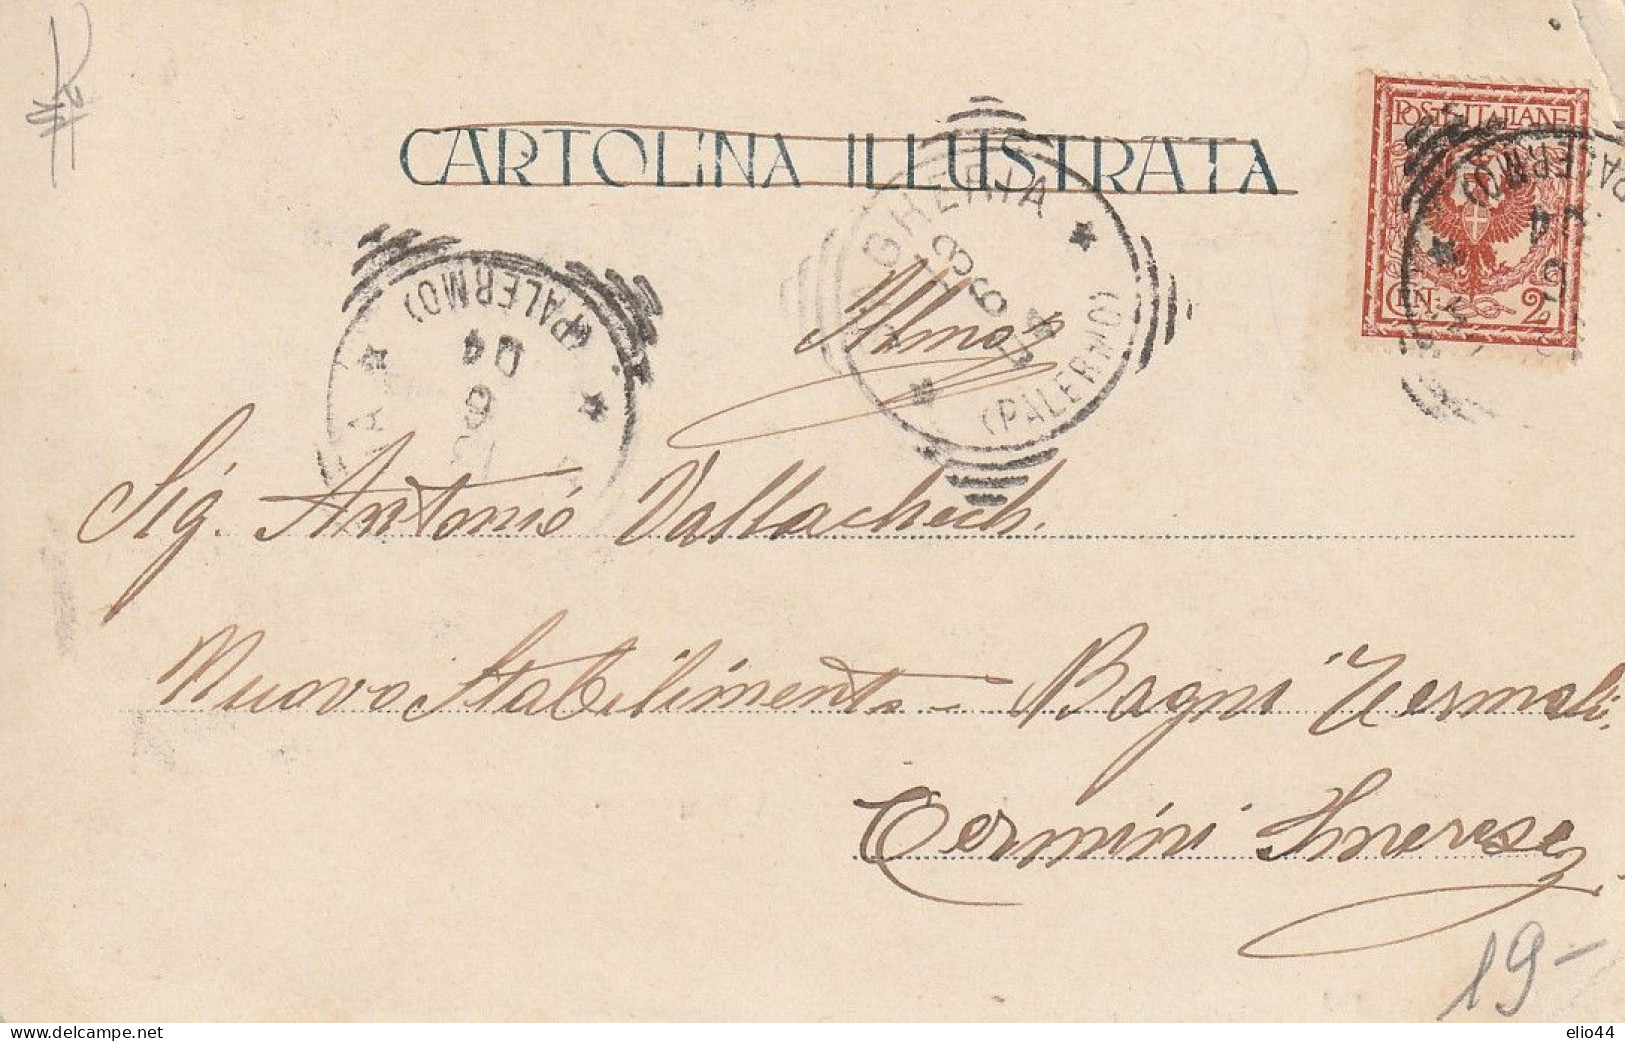 CARTOLINA ILLUSTRATA
POSTE ITALIANE
CEN: 2
BAGHERIA
13 6 04
(PALERMO)
(PALERMO)
6 04
(PALERMO)
Sig. Antonio Vallachech.
Nuovo Stabilimento - Bagni Termali.
Termini Imerese
19-
delcampe.net
elio44